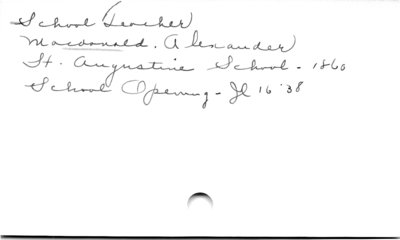 School Teacher
Macdonald. Alexander
St. Augustine School - 1860
School Opening - Jl 16 '38